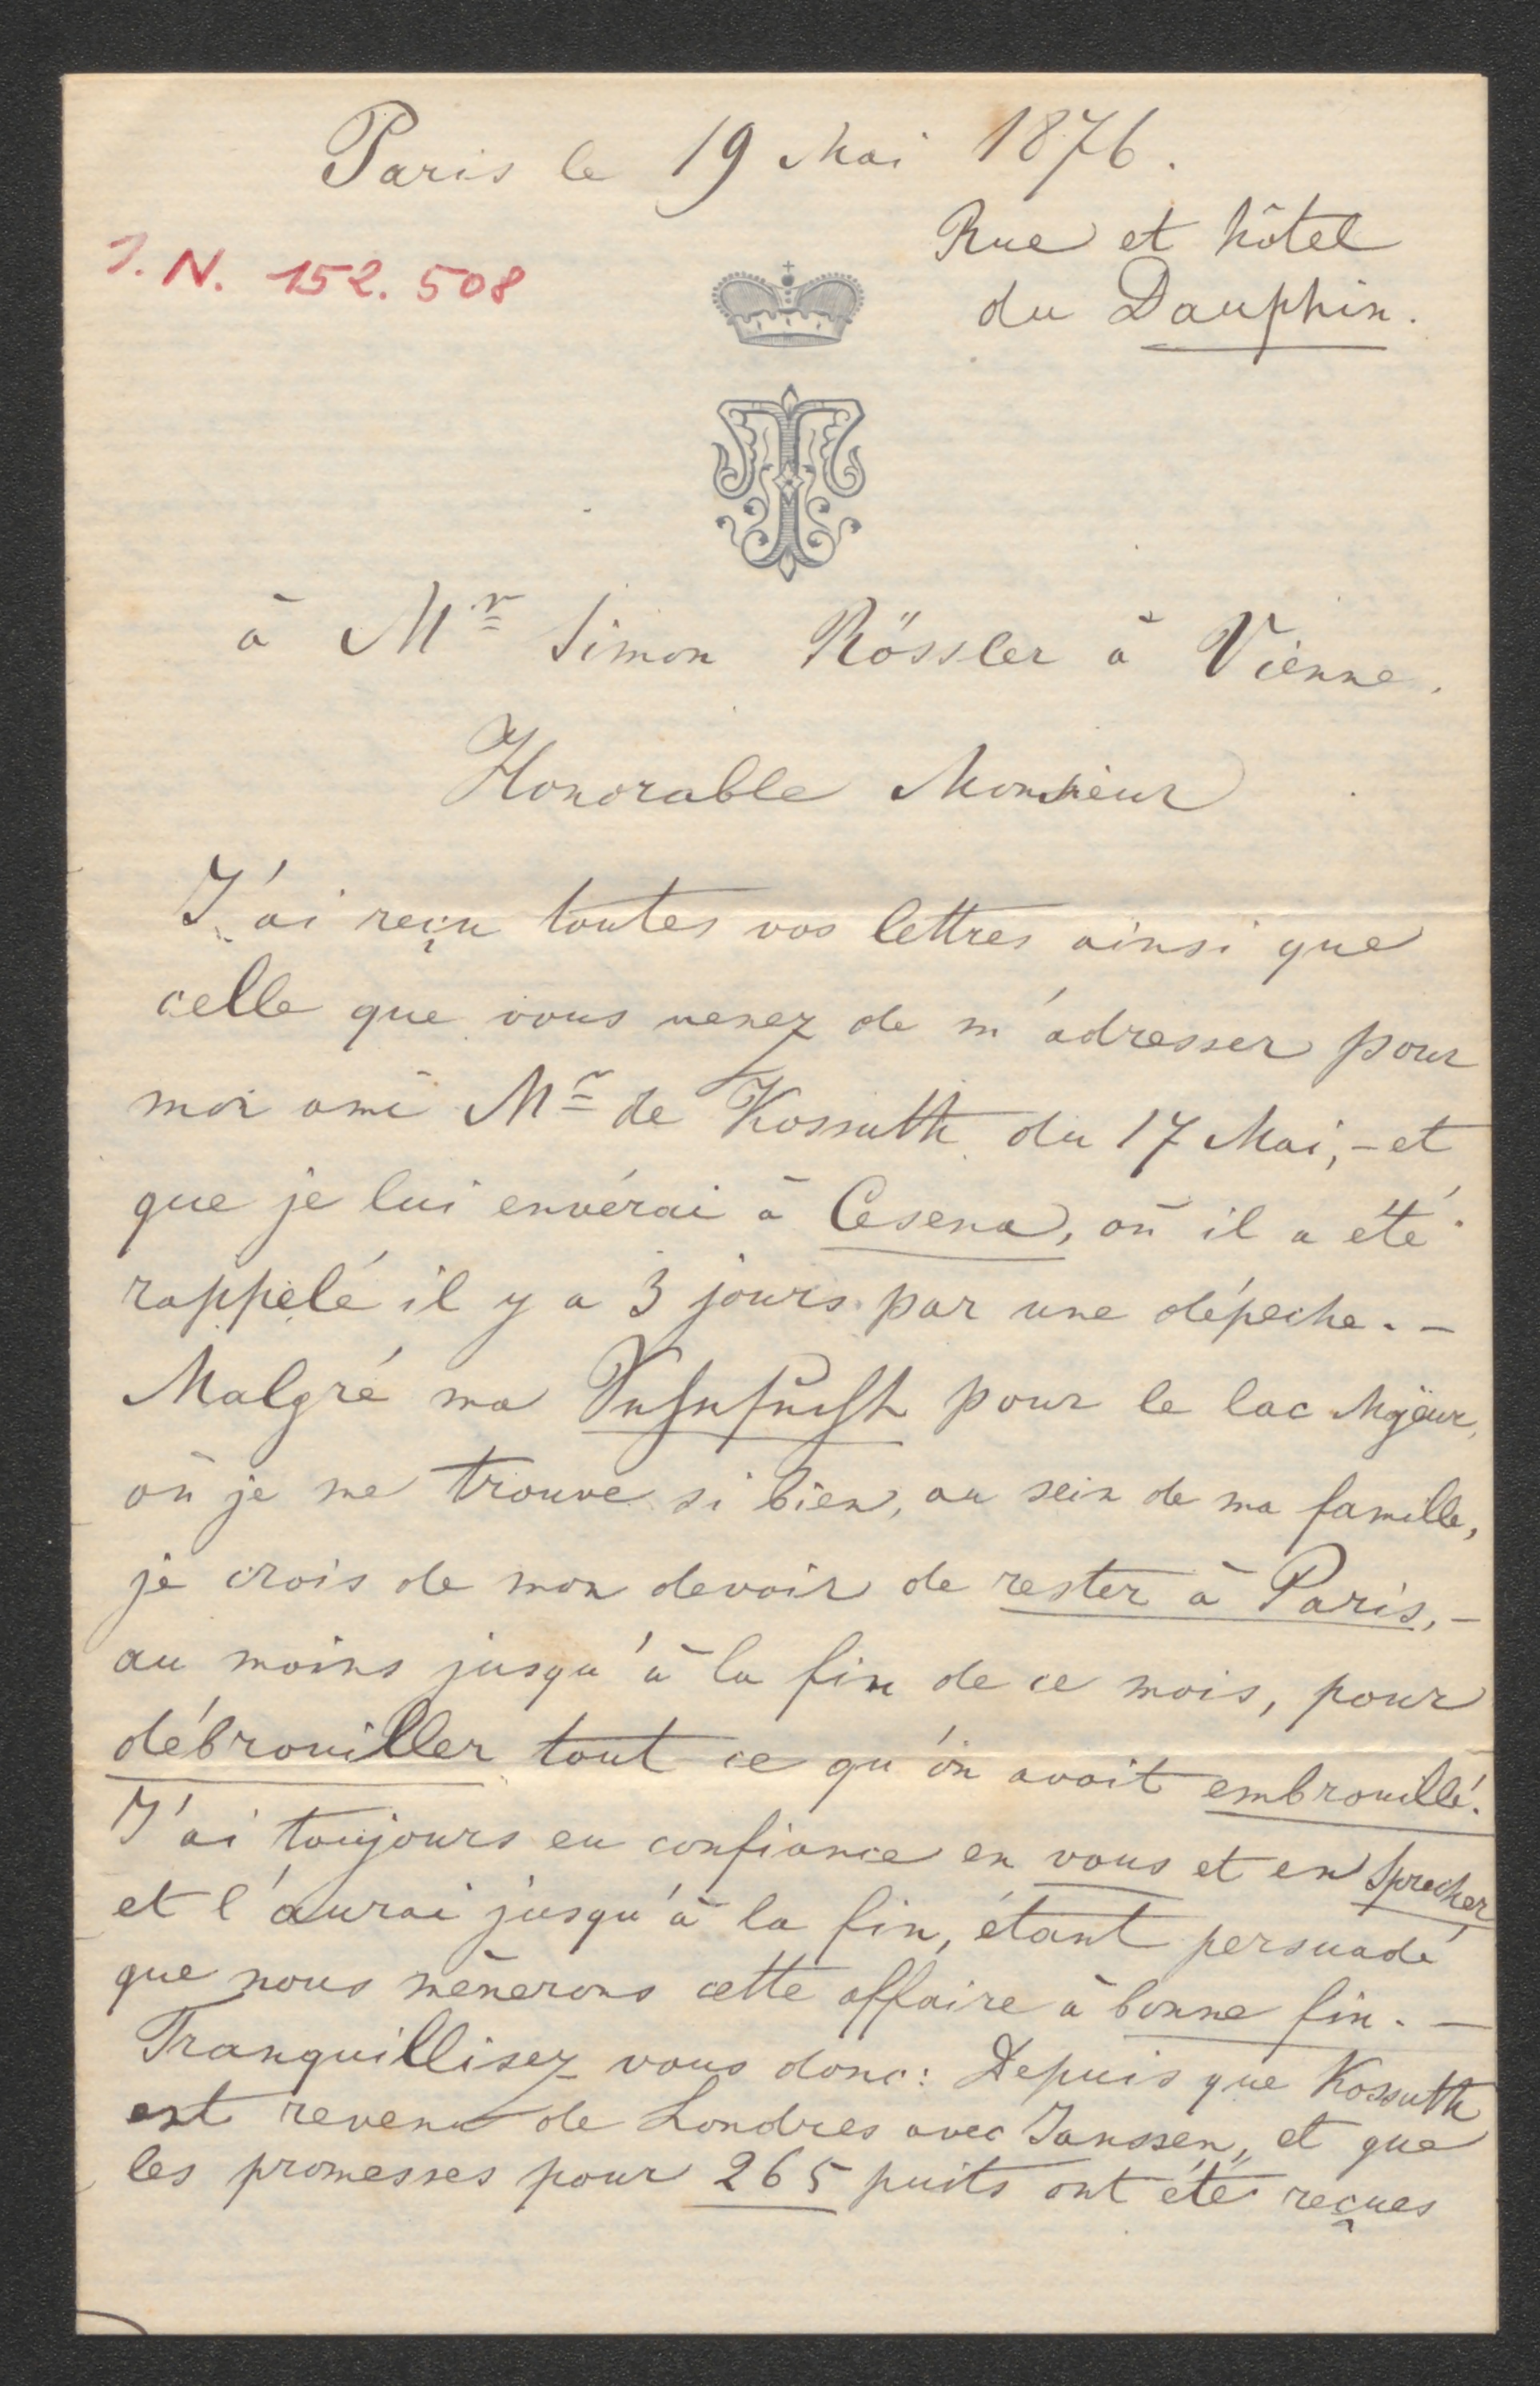 Paris le 19 Mai 1876.
Rue et hôtel
du Dauphin.
J. N. 152.508
à Mr Simon Rössler à Vienne.
Honorable Monsieur
J'ai reçu toutes vos lettres ainsi que
celle que vous venez de m'adresser pour
mon ami Mr de Kossuth du 17 Mai, - et
que je lui envérai à Cesena, où il a été
rappelé il y a 3 jours par une dépeche. -
Malgré ma Sehnsucht pour le lac Majeur,
où je me trouve si bien, au sein de ma famille,
je crois de mon devoir de rester à Paris, -
au moins jusqu'à la fin de ce mois, pour
débrouiller tout ce qu'on avait embrouillé.
J'ai toujours eu confiance en vous et en Sprecher
et l'aurai jusqu'à la fin, étant persuadé
que nous mènerons cette affaire à bonne fin. -
Tranquillisez vous donc: Depuis que Kossuth
est revenu de Londres avec Janssen, et que
les promesses pour 265 puits ont été reçues